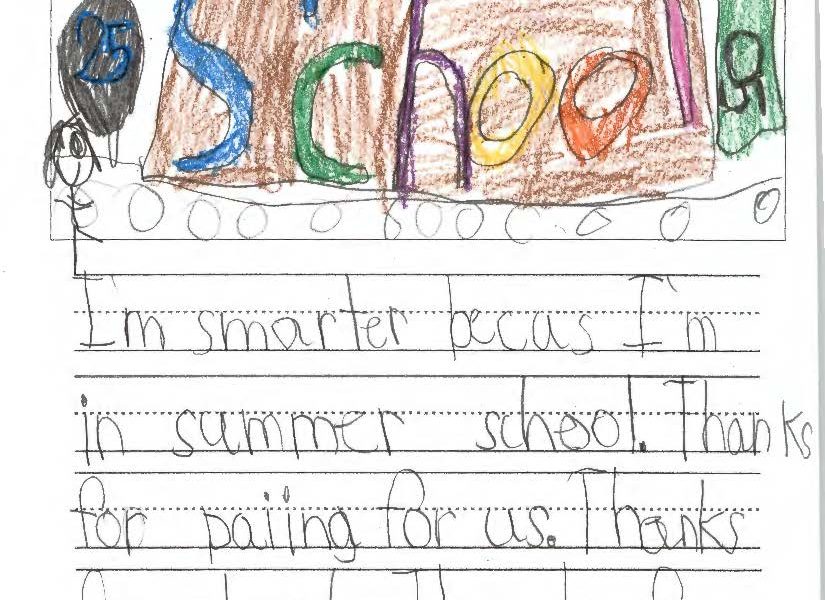 25
School
I'm smarter becus I'm
in summer school. Thanks
for paiing for us. Thanks